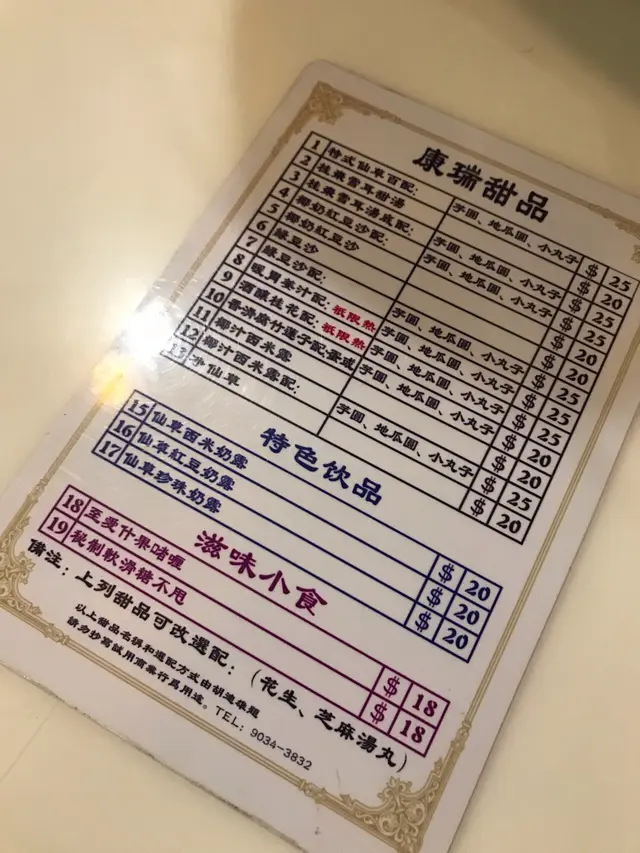 康瑞甜品
1 特式仙草百配: 芋圆、地瓜圆、小丸子 $ 25
2 桂花雪耳甜湯 $ 20
3 桂花雪耳湯底配: 芋圆、地瓜圆、小丸子 $ 25
4 椰奶紅豆沙配: 芋圆、地瓜圆、小丸子
5 椰奶紅豆沙 $ 20
6 綠豆沙 $ 20
7 綠豆沙配: 芋圆、地瓜圆、小丸子 $ 25
8 暖胃薑汁配: 祇限熱 芋圆、地瓜圆、小丸子 $ 25
9 酒釀桂花配: 祇限熱 芋圆、地瓜圆、小丸子 $ 25
10 香滑腐竹蓮子配:蛋或 芋圆、地瓜圆、小丸子 $ 25
11 椰汁西米露 $ 20
12 椰汁西米露配: 芋圆、地瓜圆、小丸子 $ 25
13 仙草 $ 20
特色饮品
15 仙草西米奶露 $ 20
16 仙草紅豆奶露 $ 20
17 仙草珍珠奶露 $ 20
滋味小食
18 至愛什果啫喱 $ 18
19 秘制軟滑糖不甩 $ 18
備注：上列甜品可改選配：(花生、芝麻湯丸)
以上甜品名稱和選配方式由胡
請勿抄寫試用商業行爲用途。TEL: 9034-3832